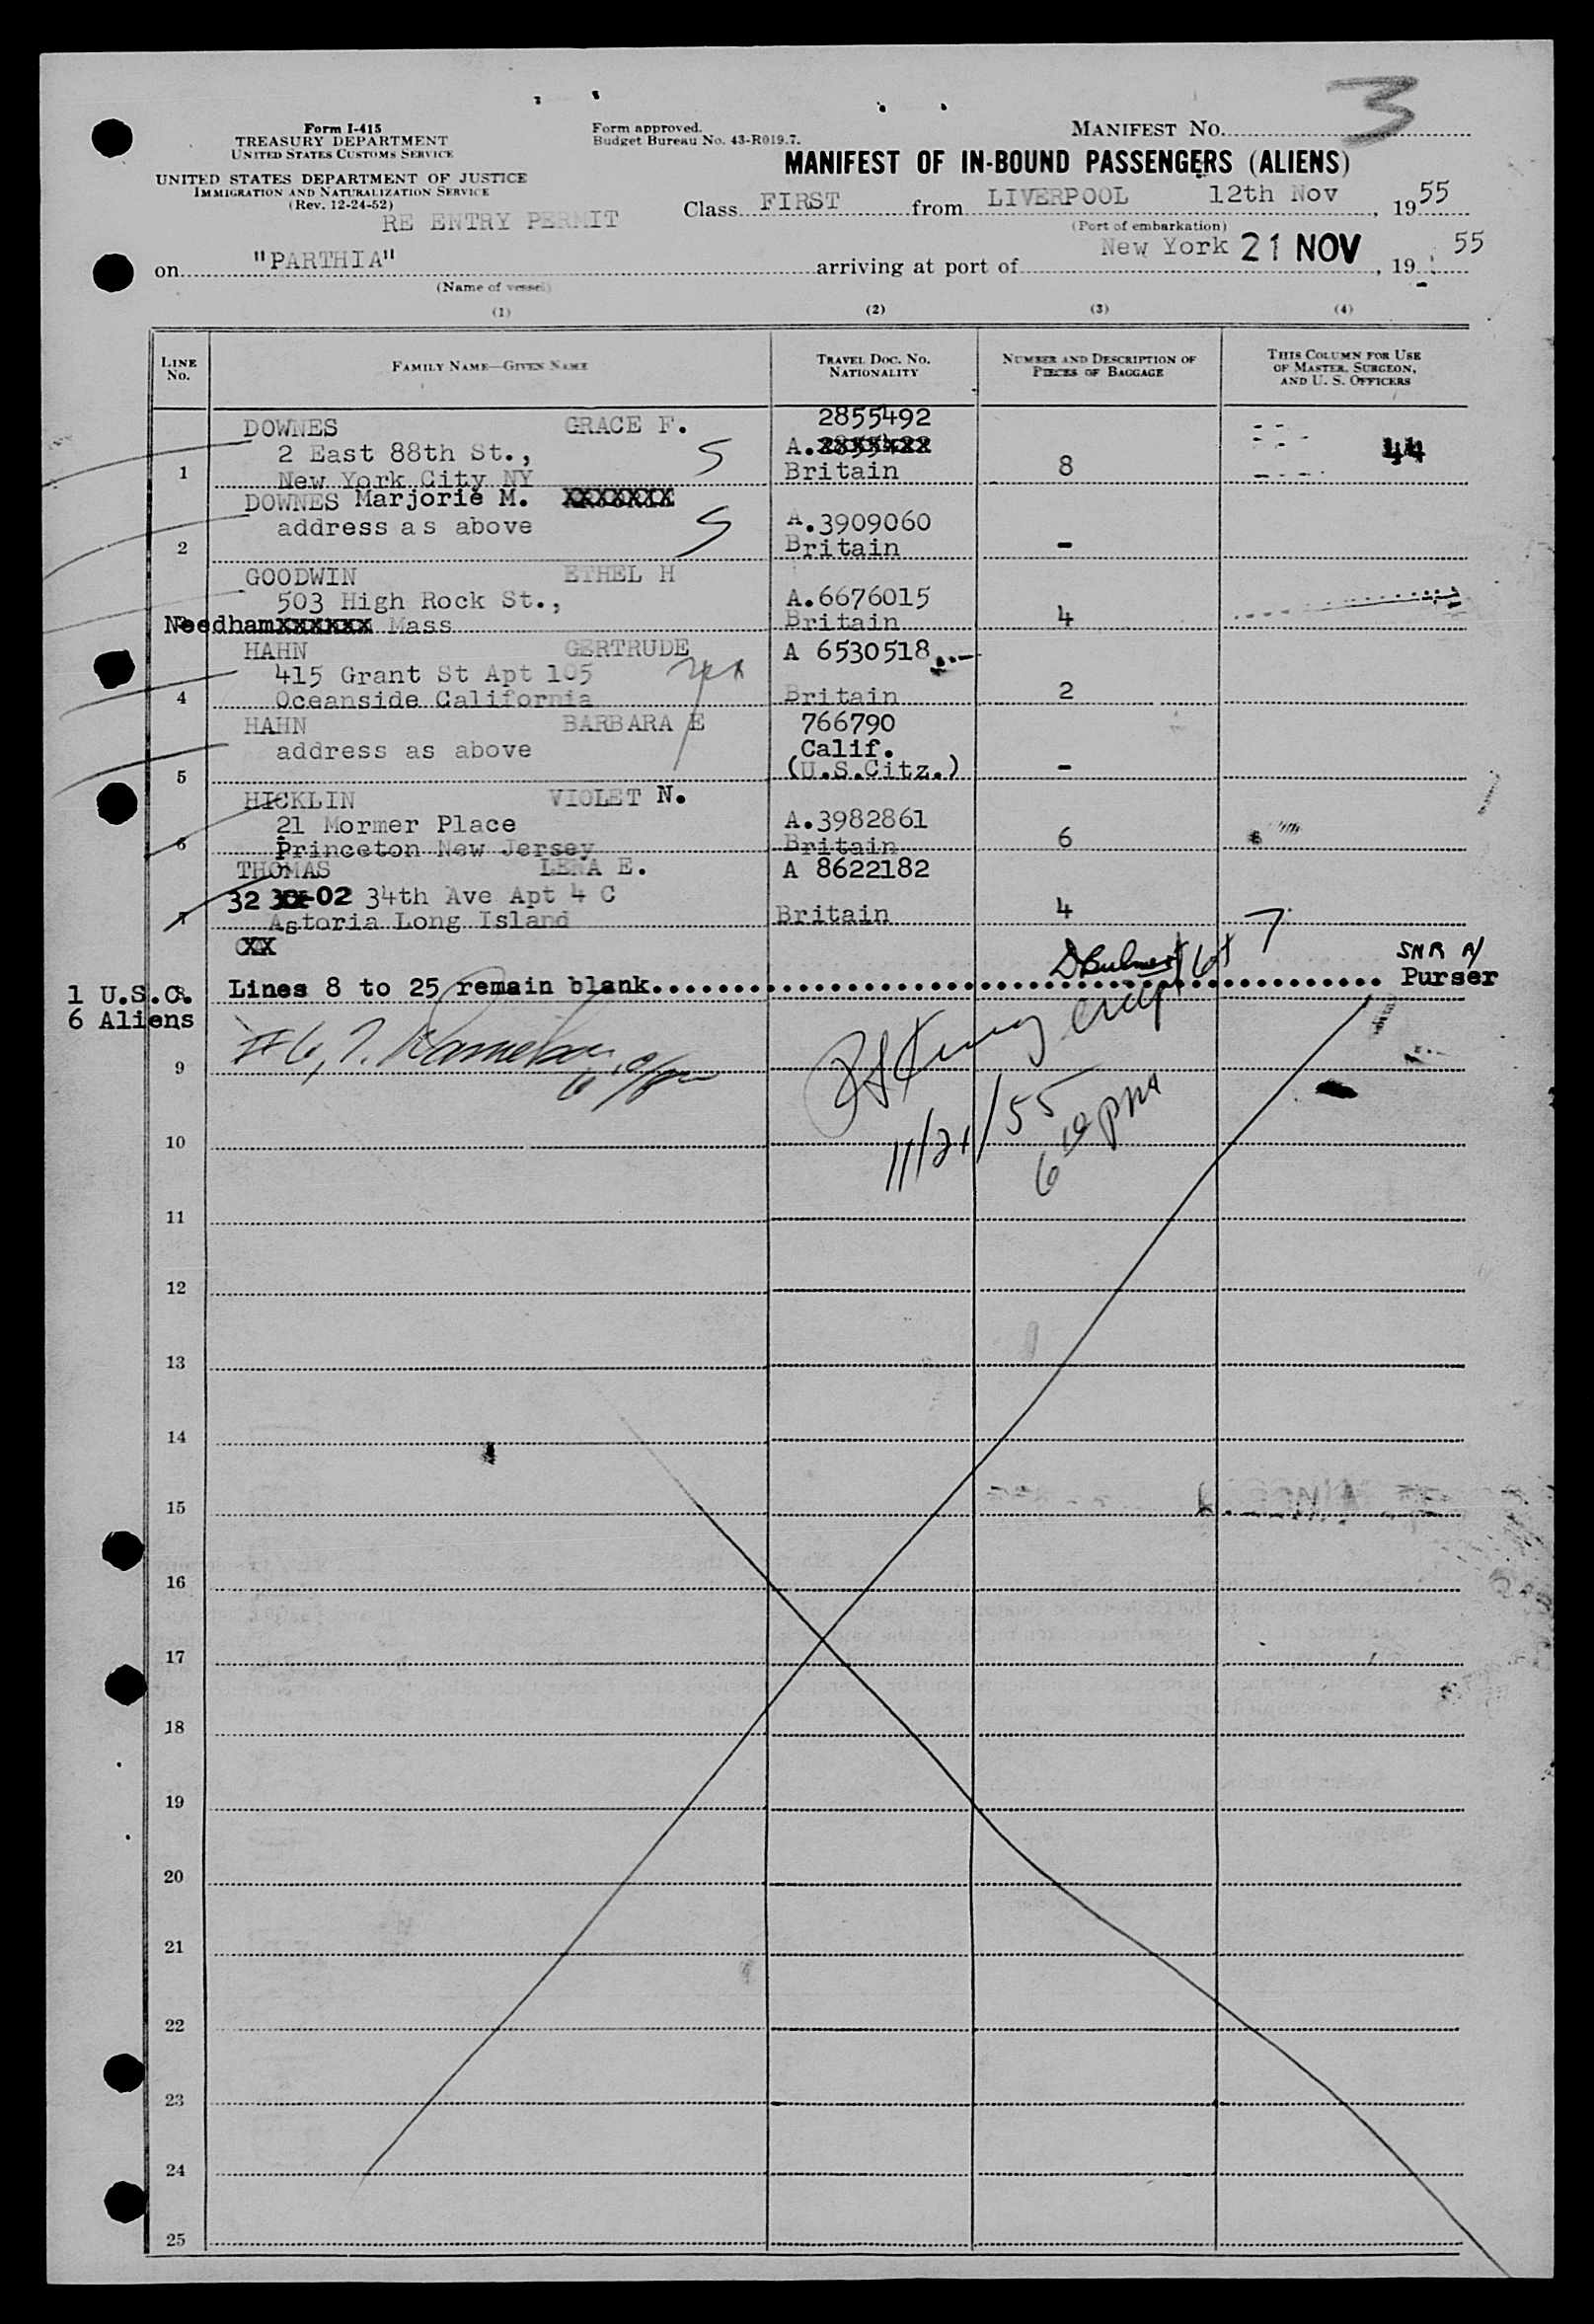 3
Form I-415
TREASURY DEPARTMENT
UNITED STATES CUSTOMS SERVICE
UNITED STATES DEPARTMENT OF JUSTICE
IMMIGRATION AND NATURALIZATION SERVICE
(Rev. 12-24-52)
Form approved.
Budget Bureau No. 43-R019.7.
MANIFEST NO.
MANIFEST OF IN-BOUND PASSENGERS (ALIENS)
RE ENTRY PERMIT
Class FIRST from LIVERPOOL 12th Nov, 1955
(Port of embarkation)
on "PARTHIA" arriving at port of New York 21 NOV, 19 55
(Name of vessel)
(1) (2) (3) (4)
LINE NO.
FAMILY NAME—GIVEN NAME
TRAVEL DOC. NO. NATIONALITY
NUMBER AND DESCRIPTION OF PIECES OF BAGGAGE
THIS COLUMN FOR USE OF MASTER, SURGEON, AND U. S. OFFICERS
DOWNES GRACE F. 2855492
2 East 88th St., S A. 44
1 New York City NY Britain 8
DOWNES Marjorie M. XXXXXXX
address as above S A.3909060
2 Britain -
GOODWIN ETHEL H
503 High Rock St., A.6676015
Needham XXXXXX Mass Britain 4
HAHN GERTRUDE A 6530518
415 Grant St Apt 105
4 Oceanside California Britain 2
HAHN BARBARA E 766790
address as above Calif.
5 (U.S.Citz.) -
HICKLIN VIOLET N.
21 Mormer Place A.3982861
6 Princeton New Jersey Britain 6
THOMAS LENA E. A 8622182
32 -02 34th Ave Apt 4 C
7 Astoria Long Island Britain 4 7
XX
SNR A/
1 U.S.C. 8 Lines 8 to 25 remain blank Purser
6 Aliens
#6, 7.
9
11/21/55
10
6 10 PM
11
12
13
14
15
16
17
18
19
20
21
22
23
24
25